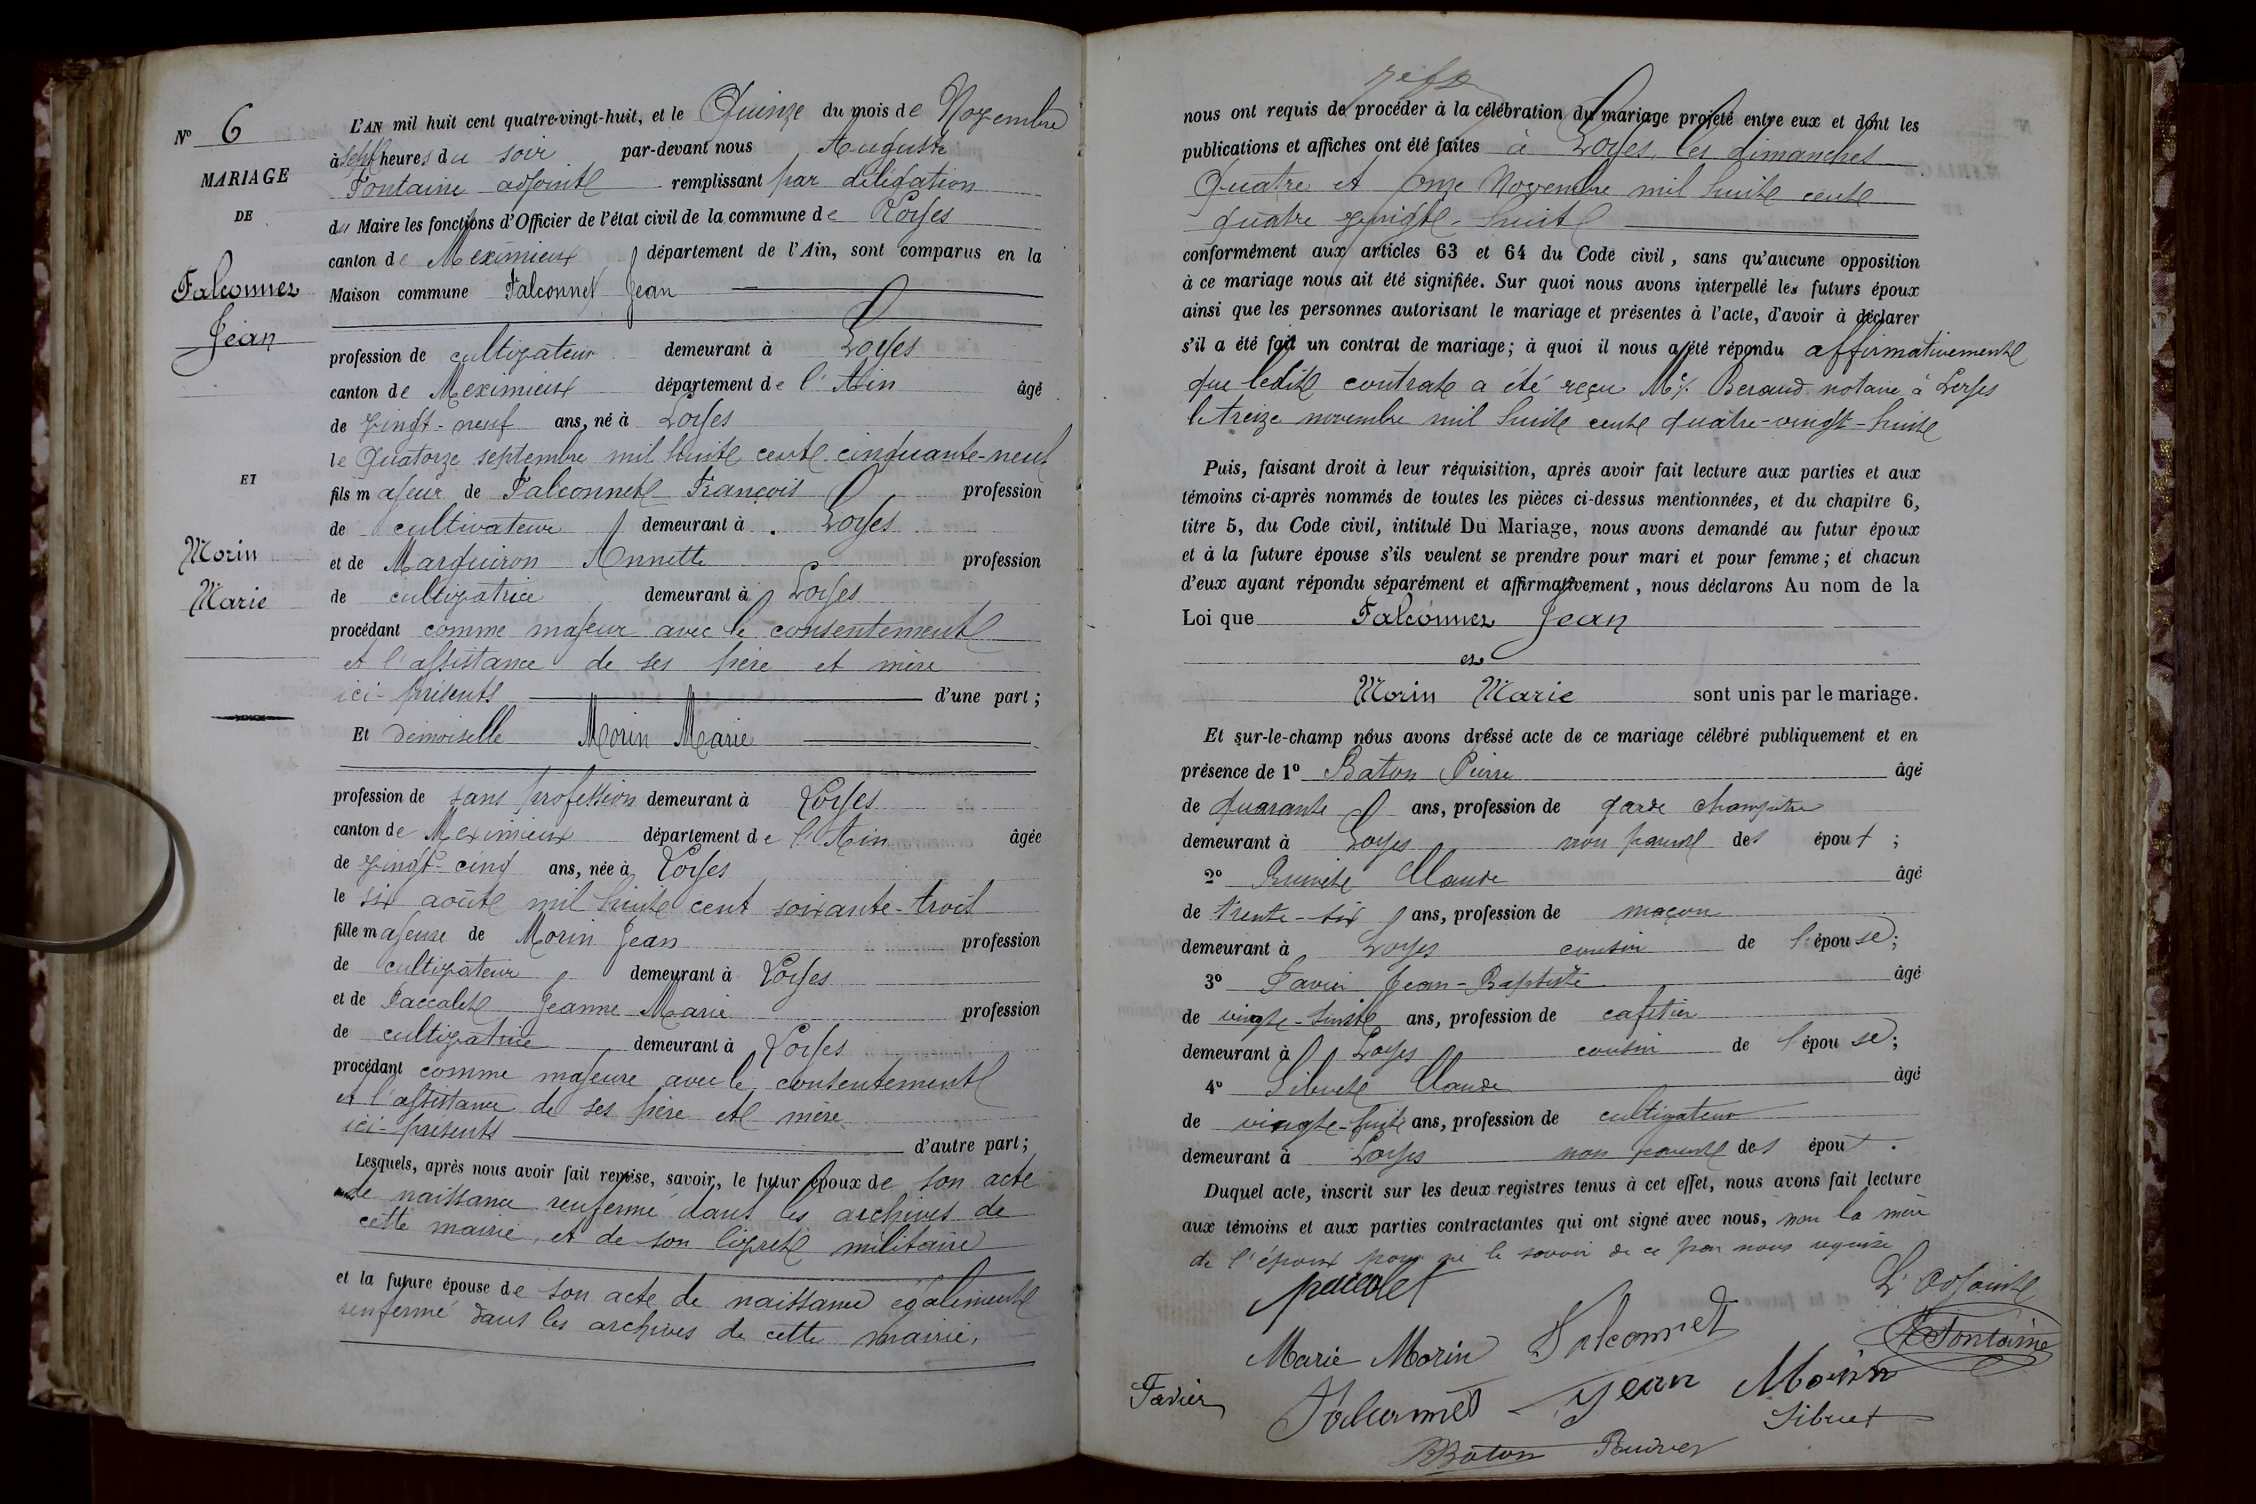 N° 6
MARIAGE
DE
Falconnet
Jean
ET
Morin
Marie
L'AN mil huit cent quatre-vingt-huit, et le Quinze du mois de Novembre
à sept heures du soir par-devant nous Auguste
Fontaine adjoint remplissant par délégation
du Maire les fonctions d'Officier de l'état civil de la commune de Loyes
canton de Meximieux département de l'Ain, sont comparus en la
Maison commune Falconnet Jean
profession de cultivateur demeurant à Loyes
canton de Meximieux département de l'Ain âgé
de vingt-neuf ans, né à Loyes
le Quatorze septembre mil huit cent cinquante-neuf
fils majeur de Falconnet François profession
de cultivateur demeurant à Loyes
et de Marguiron Annette profession
de cultivatrice demeurant à Loyes
procédant comme majeur avec le consentement
et l'assistance de ses père et mère
ici-présents d'une part;
Et demoiselle Morin Marie
profession de sans profession demeurant à Loyes
canton de Meximieux département de l'Ain âgée
de vingt-cinq ans, née à Loyes
le six août mil huit cent soixante-trois
fille majeure de Morin Jean profession
de cultivateur demeurant à Loyes
et de Paccalet Jeanne Marie profession
de cultivatrice demeurant à Loyes
procédant comme majeure avec le consentement
et l'assistance de ses père et mère
ici-présents d'autre part;
Lesquels, après nous avoir fait remise, savoir, le futur époux de son acte
de naissance renfermé dans les archives de
cette mairie, et de son livret militaire
et la future épouse de son acte de naissance également
renfermé dans les archives de cette mairie.
nous ont requis de procéder à la célébration du mariage projeté entre eux et dont les
publications et affiches ont été faites à Loyes, les dimanches
Quatre et onze Novembre mil huit cent
quatre vingt-huit
conformément aux articles 63 et 64 du Code civil, sans qu'aucune opposition
à ce mariage nous ait été signifiée. Sur quoi nous avons interpellé les futurs époux
ainsi que les personnes autorisant le mariage et présentes à l'acte, d'avoir à déclarer
s'il a été fait un contrat de mariage; à quoi il nous a été répondu affirmativement
que ledit contrat a été reçu Me. Beraud notaire à Loyes
le treize novembre mil huit cent quatre-vingt-huit
Puis, faisant droit à leur réquisition, après avoir fait lecture aux parties et aux
témoins ci-après nommés de toutes les pièces ci-dessus mentionnées, et du chapitre 6,
titre 5, du Code civil, intitulé Du Mariage, nous avons demandé au futur époux
et à la future épouse s'ils veulent se prendre pour mari et pour femme; et chacun
d'eux ayant répondu séparément et affirmativement, nous déclarons Au nom de la
Loi que Falconnet Jean
et
Morin Marie sont unis par le mariage.
Et sur-le-champ nous avons dressé acte de ce mariage célébré publiquement et en
présence de 1° Baton Pierre âgé
de quarante ans, profession de garde champêtre
demeurant à Loyes non parent des époux;
2° Claude âgé
de trente-six ans, profession de maçon
demeurant à Loyes cousin de l'épouse;
3° Favier Jean-Baptiste âgé
de vingt-huit ans, profession de cafetier
demeurant à Loyes cousin de l'épouse;
4° Sibuet Claude âgé
de vingt-huit ans, profession de cultivateur
demeurant à Loyes non parent des époux.
Duquel acte, inscrit sur les deux registres tenus à cet effet, nous avons fait lecture
aux témoins et aux parties contractantes qui ont signé avec nous, non la mère
de l'époux pour ne le savoir de ce par nous requise
paccalet
L'adjoint
Marie Morin Falconnet
A Fontaine
Favier
Falconnet Jean Morin
Sibuet
Baton